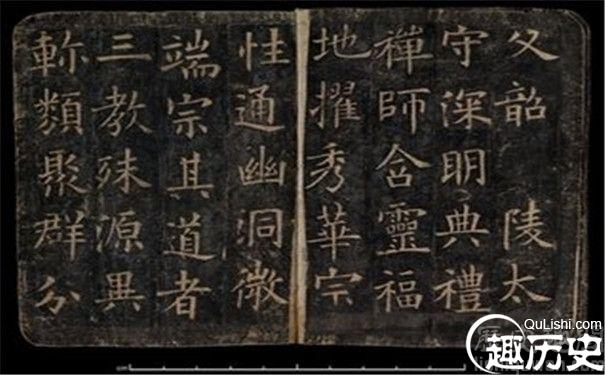 父韶 陵太
守深明典禮
禪師含靈福
地擢秀華宗
性通幽洞微
端宗其道者
三教殊源異
軫類聚群分
QuLishi.com
趣历史